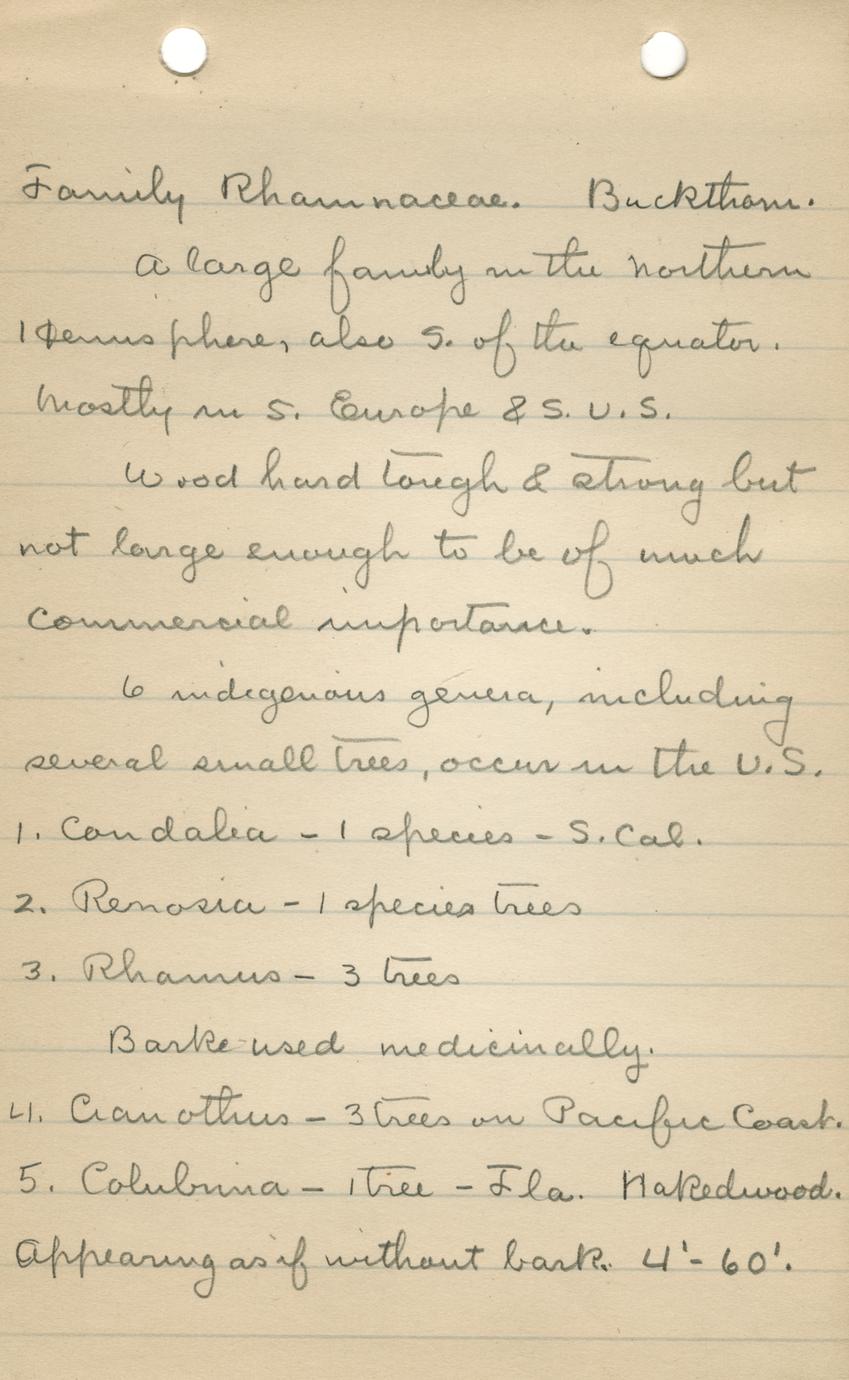 Family Rhamnaceae. Buckthorn.
A large family in the northern
Hemisphere, also S. of the equator.
Mostly in S. Europe & S. U. S.
Wood hard tough & strong but
not large enough to be of much
commercial importance.
6 indegenious genera, including
several small trees, occur in the U.S.
1. Condalia - 1 species - S. Cal.
2. Renosia - 1 species trees
3. Rhamus - 3 trees
Barke used medicinally.
4. Cianothus - 3 trees on Pacific Coast.
5. Colubrina - 1 tree - Fla. Nakedwood.
Appearing as if without bark. 4'- 60'.